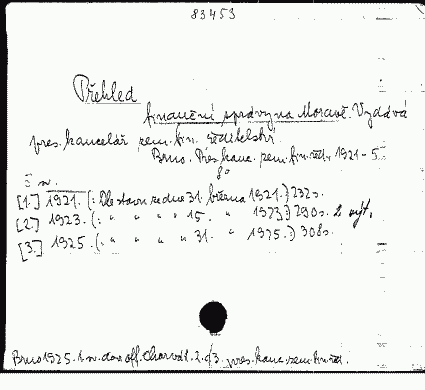 83453
Přehled
finanční správy na Moravě. Vydává
pres. kancelář zem. fin. ředitelství.
Brno. Pres. kanc. zem. fin. řed. 1921-5.
8°
3 sv.
[1.] 1921. (: Dle stavu ze dne 31. března 1921.:) 232 s.
[2.] 1923. (: " " " " 15. " 1923.:) 290 s. 2 výt.
[3.] 1925. (: " " " " 31. " 1925.:) 308 s.
Brno 1925. 1 sv. dar off. 2. pres. kanc. zem. fin. řed.